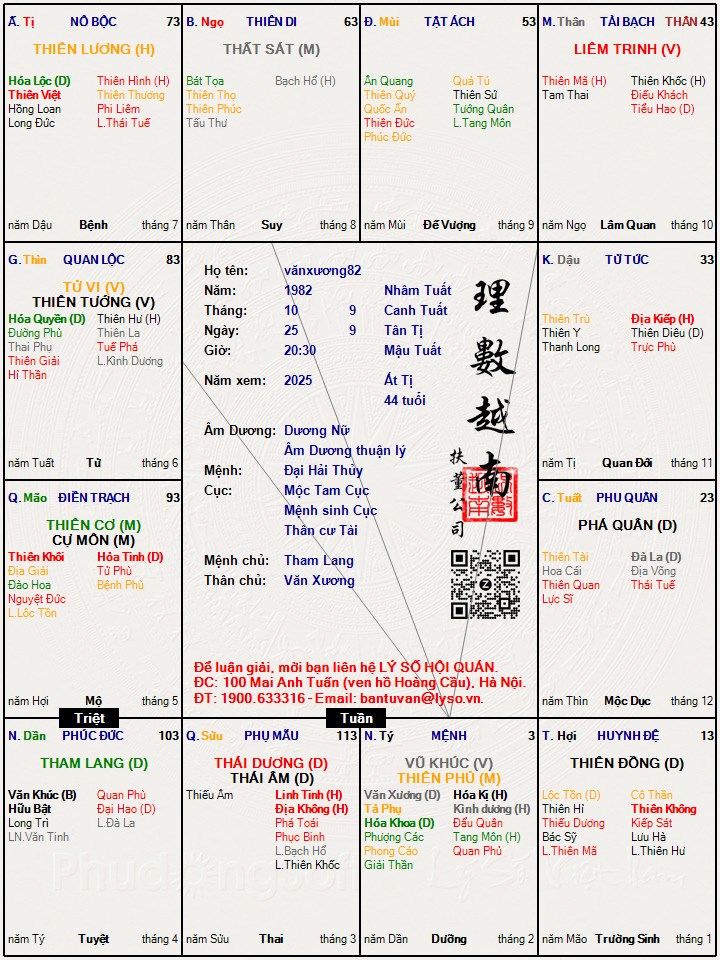 Ấ. Tị NÔ BỘC 73
THIÊN LƯƠNG (H)
Hóa Lộc (D) Thiên Hình (H)
Thiên Việt Thiên Thương
Hồng Loan Phi Liêm
Long Đức L.Thái Tuế
năm Dậu Bệnh tháng 7
B. Ngọ THIÊN DI 63
THẤT SÁT (M)
Bát Tọa Bạch Hổ (H)
Thiên Thọ
Thiên Phúc
Tấu Thư
năm Thân Suy tháng 8
Đ. Mùi TẬT ÁCH 53
Ân Quang Quả Tú
Thiên Quý Thiên Sứ
Quốc Ấn Tướng Quân
Thiên Đức L.Tang Môn
Phúc Đức
năm Mùi Đế Vượng tháng 9
M. Thân TÀI BẠCH THÂN 43
LIÊM TRINH (V)
Thiên Mã (H) Thiên Khốc (H)
Tam Thai Điếu Khách
Tiểu Hao (D)
năm Ngọ Lâm Quan tháng 10
G. Thìn QUAN LỘC 83
TỬ VI (V)
THIÊN TƯỚNG (V)
Hóa Quyền (D) Thiên Hư (H)
Đường Phù Thiên La
Thai Phụ Tuế Phá
Thiên Giải L.Kình Dương
Hỉ Thần
năm Tuất Tử tháng 6
Họ tên: vănxương82
Năm: 1982 Nhâm Tuất
Tháng: 10 9 Canh Tuất
Ngày: 25 9 Tân Tị
Giờ: 20:30 Mậu Tuất
Năm xem: 2025 Ất Tị
44 tuổi
Âm Dương: Dương Nữ
Âm Dương thuận lý
Mệnh: Đại Hải Thủy
Cục: Mộc Tam Cục
Mệnh sinh Cục
Thân cư Tài
Mệnh chủ: Tham Lang
Thân chủ: Văn Xương
理數越南
扶董公司
Để luận giải, mời bạn liên hệ LÝ SỐ HỘI QUÁN.
ĐC: 100 Mai Anh Tuấn (ven hồ Hoàng Cầu), Hà Nội.
ĐT: 1900.633316 - Email: bantuvan@lyso.vn.
K. Dậu TỬ TỨC 33
Thiên Trù Địa Kiếp (H)
Thiên Y Thiên Diêu (D)
Thanh Long Trực Phù
năm Tị Quan Đới tháng 11
Q. Mão ĐIỀN TRẠCH 93
THIÊN CƠ (M)
CỰ MÔN (M)
Thiên Khôi Hỏa Tinh (D)
Địa Giải Tử Phù
Đào Hoa Bệnh Phù
Nguyệt Đức
L.Lộc Tồn
năm Hợi Mộ tháng 5
C. Tuất PHU QUÂN 23
PHÁ QUÂN (D)
Thiên Tài Đà La (D)
Hoa Cái Địa Võng
Thiên Quan Thái Tuế
Lực Sĩ
năm Thìn Mộc Dục tháng 12
Triệt
Tuần
N. Dần PHÚC ĐỨC 103
THAM LANG (D)
Văn Khúc (B) Quan Phù
Hữu Bật Đại Hao (D)
Long Trì L.Đà La
LN.Văn Tinh
năm Tý Tuyệt tháng 4
Q. Sửu PHỤ MẪU 113
THÁI DƯƠNG (D)
THÁI ÂM (D)
Thiếu Âm Linh Tinh (H)
Địa Không (H)
Phá Toái
Phục Binh
L.Bạch Hổ
L.Thiên Khốc
năm Sửu Thai tháng 3
N. Tý MỆNH 3
VŨ KHÚC (V)
THIÊN PHỦ (M)
Văn Xương (D) Hóa Kị (H)
Tả Phụ Kình dương (H)
Hóa Khoa (D) Đẩu Quân
Phượng Các Tang Môn (H)
Phong Cáo Quan Phủ
Giải Thần
năm Dần Dưỡng tháng 2
T. Hợi HUYNH ĐỆ 13
THIÊN ĐỒNG (D)
Lộc Tồn (D) Cô Thần
Thiên Hỉ Thiên Không
Thiếu Dương Kiếp Sát
Bác Sỹ Lưu Hà
L.Thiên Mã L.Thiên Hư
năm Mão Trường Sinh tháng 1